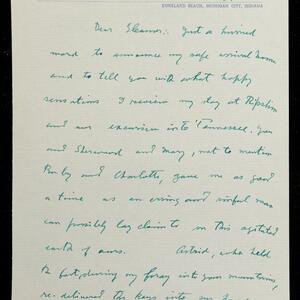 DUNELAND BEACH, MICHIGAN CITY, INDIANA
Dear Eleanor: Just a hurried
word to announce my safe arrival home
and to tell you with what happy
sensations I review my stay at Ripshin
and our excursion into Tennessee. You
and Sherwood and Mary, not to mention
Ruby and Charlotte, gave me as good
a time as an erring and sinful man
can possibly lay claim to in this agitated
earth of ours. Astrid, who held
the fort, during my foray into your mountains,
re-delivered the keys into